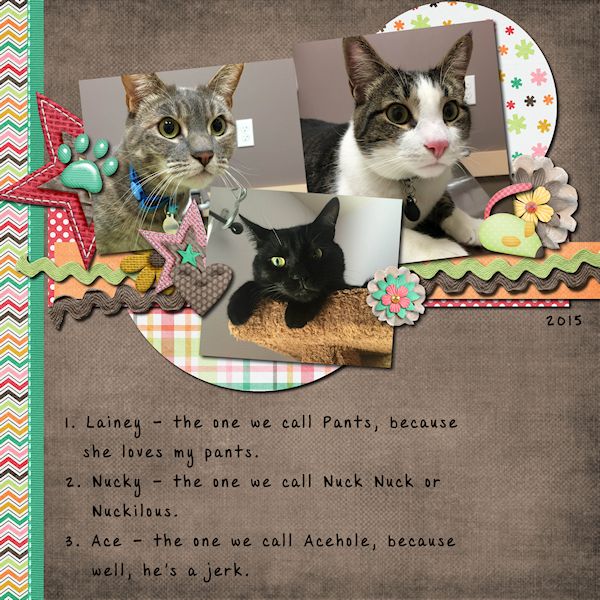 2015
1. Lainey - the one we call Pants, because
she loves my pants.
2. Nucky - the one we call Nuck Nuck or
Nuckilous.
3. Ace - the one we call Acehole, because
well, he's a jerk.